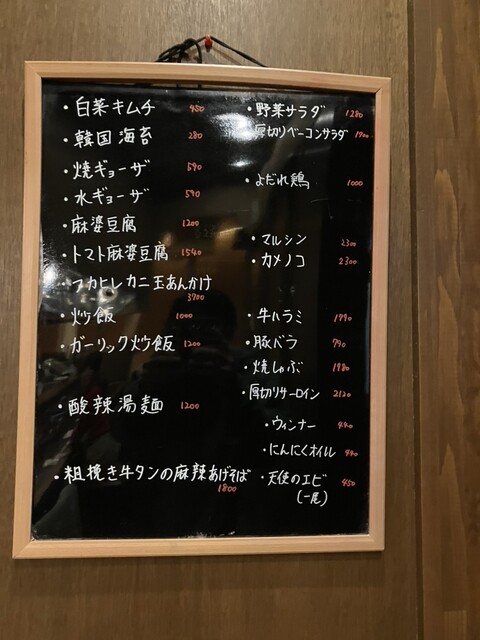 ・白菜キムチ 450
・韓国海苔 280
・焼ギョーザ 590
・水ギョーザ 590
・麻婆豆腐 1200
・トマト麻婆豆腐 1540
・フカヒレカニ玉あんかけ
3700
・炒飯 1000
・ガーリック炒飯 1200
・酸辣湯麺 1200
・粗挽き牛タンの麻辣あげそば
1800
・野菜サラダ 1280
・厚切りベーコンサラダ 1700
・よだれ鶏 1000
・マルシン 2300
・カメノコ 2300
・牛ハラミ 1790
・豚バラ 790
・焼しゃぶ 1980
・厚切りサーロイン 2120
・ウィンナー 440
・にんにくオイル
・天使のエビ 450
(一尾)